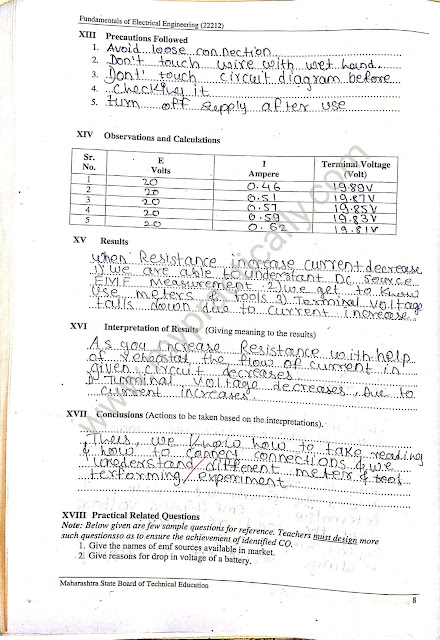 Fundamentals of Electrical Engineering (22212)
XIII Precautions Followed
1. Avoid loose connection
2. Don't touch wire with wet hand.
3. Dont' touch circuit diagram before
4. checking it
5. turn off supply after use
XIV Observations and Calculations
Sr. No. E Volts I Ampere Terminal Voltage (Volt)
1 20 0.46 19.89V
2 20 0.51 19.87V
3 20 0.57 19.85V
4 20 0.59 19.83V
5 20 0.62 19.81V
XV Results
when Resistance increase current decrease
1) we are able to understant DC source
EMF measurement 2) we get to know
use meters tools 3) Terminal voltage
falls down due to current increase.
XVI Interpretation of Results (Giving meaning to the results)
As you increase Resistance with help
of rehostat the flow of current in
given circuit decreases
Terminal voltage decreases, due to
current increases.
XVII Conclusions (Actions to be taken based on the interpretations).
Thus, we know how to take reading
& how to connect connections & we
understand different meter & tool
terforming experiment
XVIII Practical Related Questions
Note: Below given are few sample questions for reference. Teachers must design more
such questionsso as to ensure the achievement of identified CO.
1. Give the names of emf sources available in market.
2. Give reasons for drop in voltage of a battery.
8
Maharashtra State Board of Technical Education